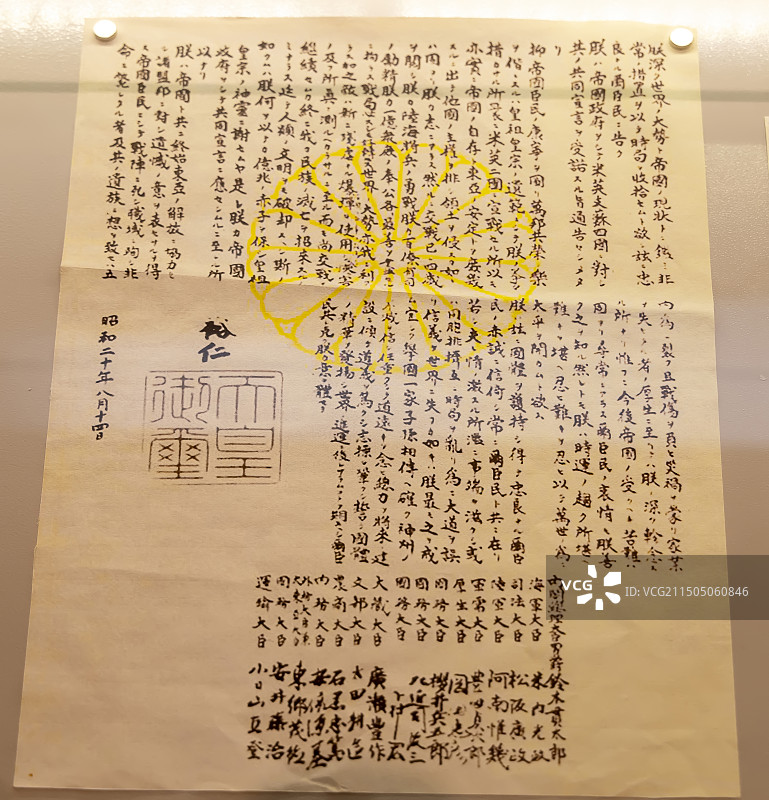 朕深ク世界ノ大勢ト帝國ノ現狀トニ鑑ミ非
常ノ措置ヲ以テ時局ヲ收拾セムト欲シ茲ニ忠
良ナル爾臣民ニ告ク
朕ハ帝國政府ヲシテ米英支蘇四國ニ對シ
其ノ共同宣言ヲ受諾スル旨通告セシメタ
リ
抑帝國臣民ノ康寧ヲ圖リ萬邦共榮ノ樂
ヲ偕ニスルハ皇祖皇宗ノ遺範ニシテ朕ノ拳々
措カサル所曩ニ米英二國ニ宣戰セル所以モ
亦實ニ帝國ノ自存ト東亞ノ安定トヲ庶幾
スルニ出テ他國ノ主權ヲ排シ領土ヲ侵スカ如
キハ固ヨリ朕カ志ニアラス然ルニ交戰已ニ四歳
ヲ閲シ朕カ陸海將兵ノ勇戰朕カ百僚有司
ノ勵精朕カ一億衆庶ノ奉公各最善ヲ盡セル
ニ拘ラス戰局必スシモ好轉セス世界ノ大勢亦我ニ利
アラス加之敵ハ新ニ殘虐ナル爆彈ヲ使用シ慘害
ノ及フ所眞ニ測ルヘカラサルニ至ル而モ尚交戰ヲ
繼續セムカ終ニ我カ民族ノ滅亡ヲ招來スル
ノミナラス延テ人類ノ文明ヲモ破却スヘシ斯ノ
如クムハ朕何ヲ以テカ億兆ノ赤子ヲ保シ皇祖
皇宗ノ神靈ニ謝セムヤ是レ朕カ帝國
政府ヲシテ共同宣言ニ應セシムルニ至レル所
以ナリ
朕ハ帝國ト共ニ終始東亞ノ解放ニ協力セ
ル諸盟邦ニ對シ遺憾ノ意ヲ表セサルヲ得
ス帝國臣民ニシテ戰陣ニ死シ職域ニ殉シ非
命ニ斃レタル者及其ノ遺族ニ想ヲ致セハ五
内爲ニ裂ク且戰傷ヲ負ヒ災禍ヲ蒙リ家業
ヲ失ヒタル者ノ厚生ニ至リテハ朕ノ深ク軫念ス
ル所ナリ惟フニ今後帝國ノ受クヘキ苦難ハ
固ヨリ尋常ニアラス爾臣民ノ衷情モ朕善ク
之ヲ知ル然レトモ朕ハ時運ノ趨ク所堪ヘ
難キヲ堪ヘ忍ヒ難キヲ忍ヒ以テ萬世ノ爲ニ
太平ヲ開カムト欲ス
朕ハ茲ニ國體ヲ護持シ得テ忠良ナル爾臣
民ノ赤誠ニ信倚シ常ニ爾臣民ト共ニ在リ
若シ夫レ情ノ激スル所濫ニ事端ヲ滋クシ或
ハ同胞排擠互ニ時局ヲ亂リ爲ニ大道ヲ誤
リ信義ヲ世界ニ失フカ如キハ朕最モ之ヲ戒
ム宜シク擧國一家子孫相傳ヘ確ク神州ノ
不滅ヲ信シ任重クシテ道遠キヲ念ヒ總力ヲ將來ノ建
設ニ傾ケ道義ヲ篤クシ志操ヲ鞏クシ誓テ國體
ノ精華ヲ發揚シ世界ノ進運ニ後レサラムコトヲ期スヘシ爾臣
民其レ克ク朕カ意ヲ體セヨ
裕仁
天皇
御璽
昭和二十年八月十四日
内閣總理大臣男爵 鈴木貫太郎
海軍大臣 米内光政
司法大臣 松阪廣政
陸軍大臣 阿南惟幾
軍需大臣 豊田貞次郎
厚生大臣 岡田忠彦
國務大臣 櫻井兵五郎
國務大臣 左近司政三
國務大臣 下村宏
大藏大臣 廣瀬豊作
文部大臣 太田耕造
農商大臣 石黒忠篤
内務大臣 安倍源基
外務大臣兼大東亞大臣 東郷茂徳
國務大臣 安井藤治
運輸大臣 小日山直登
VCG
ID: VCG211505060846